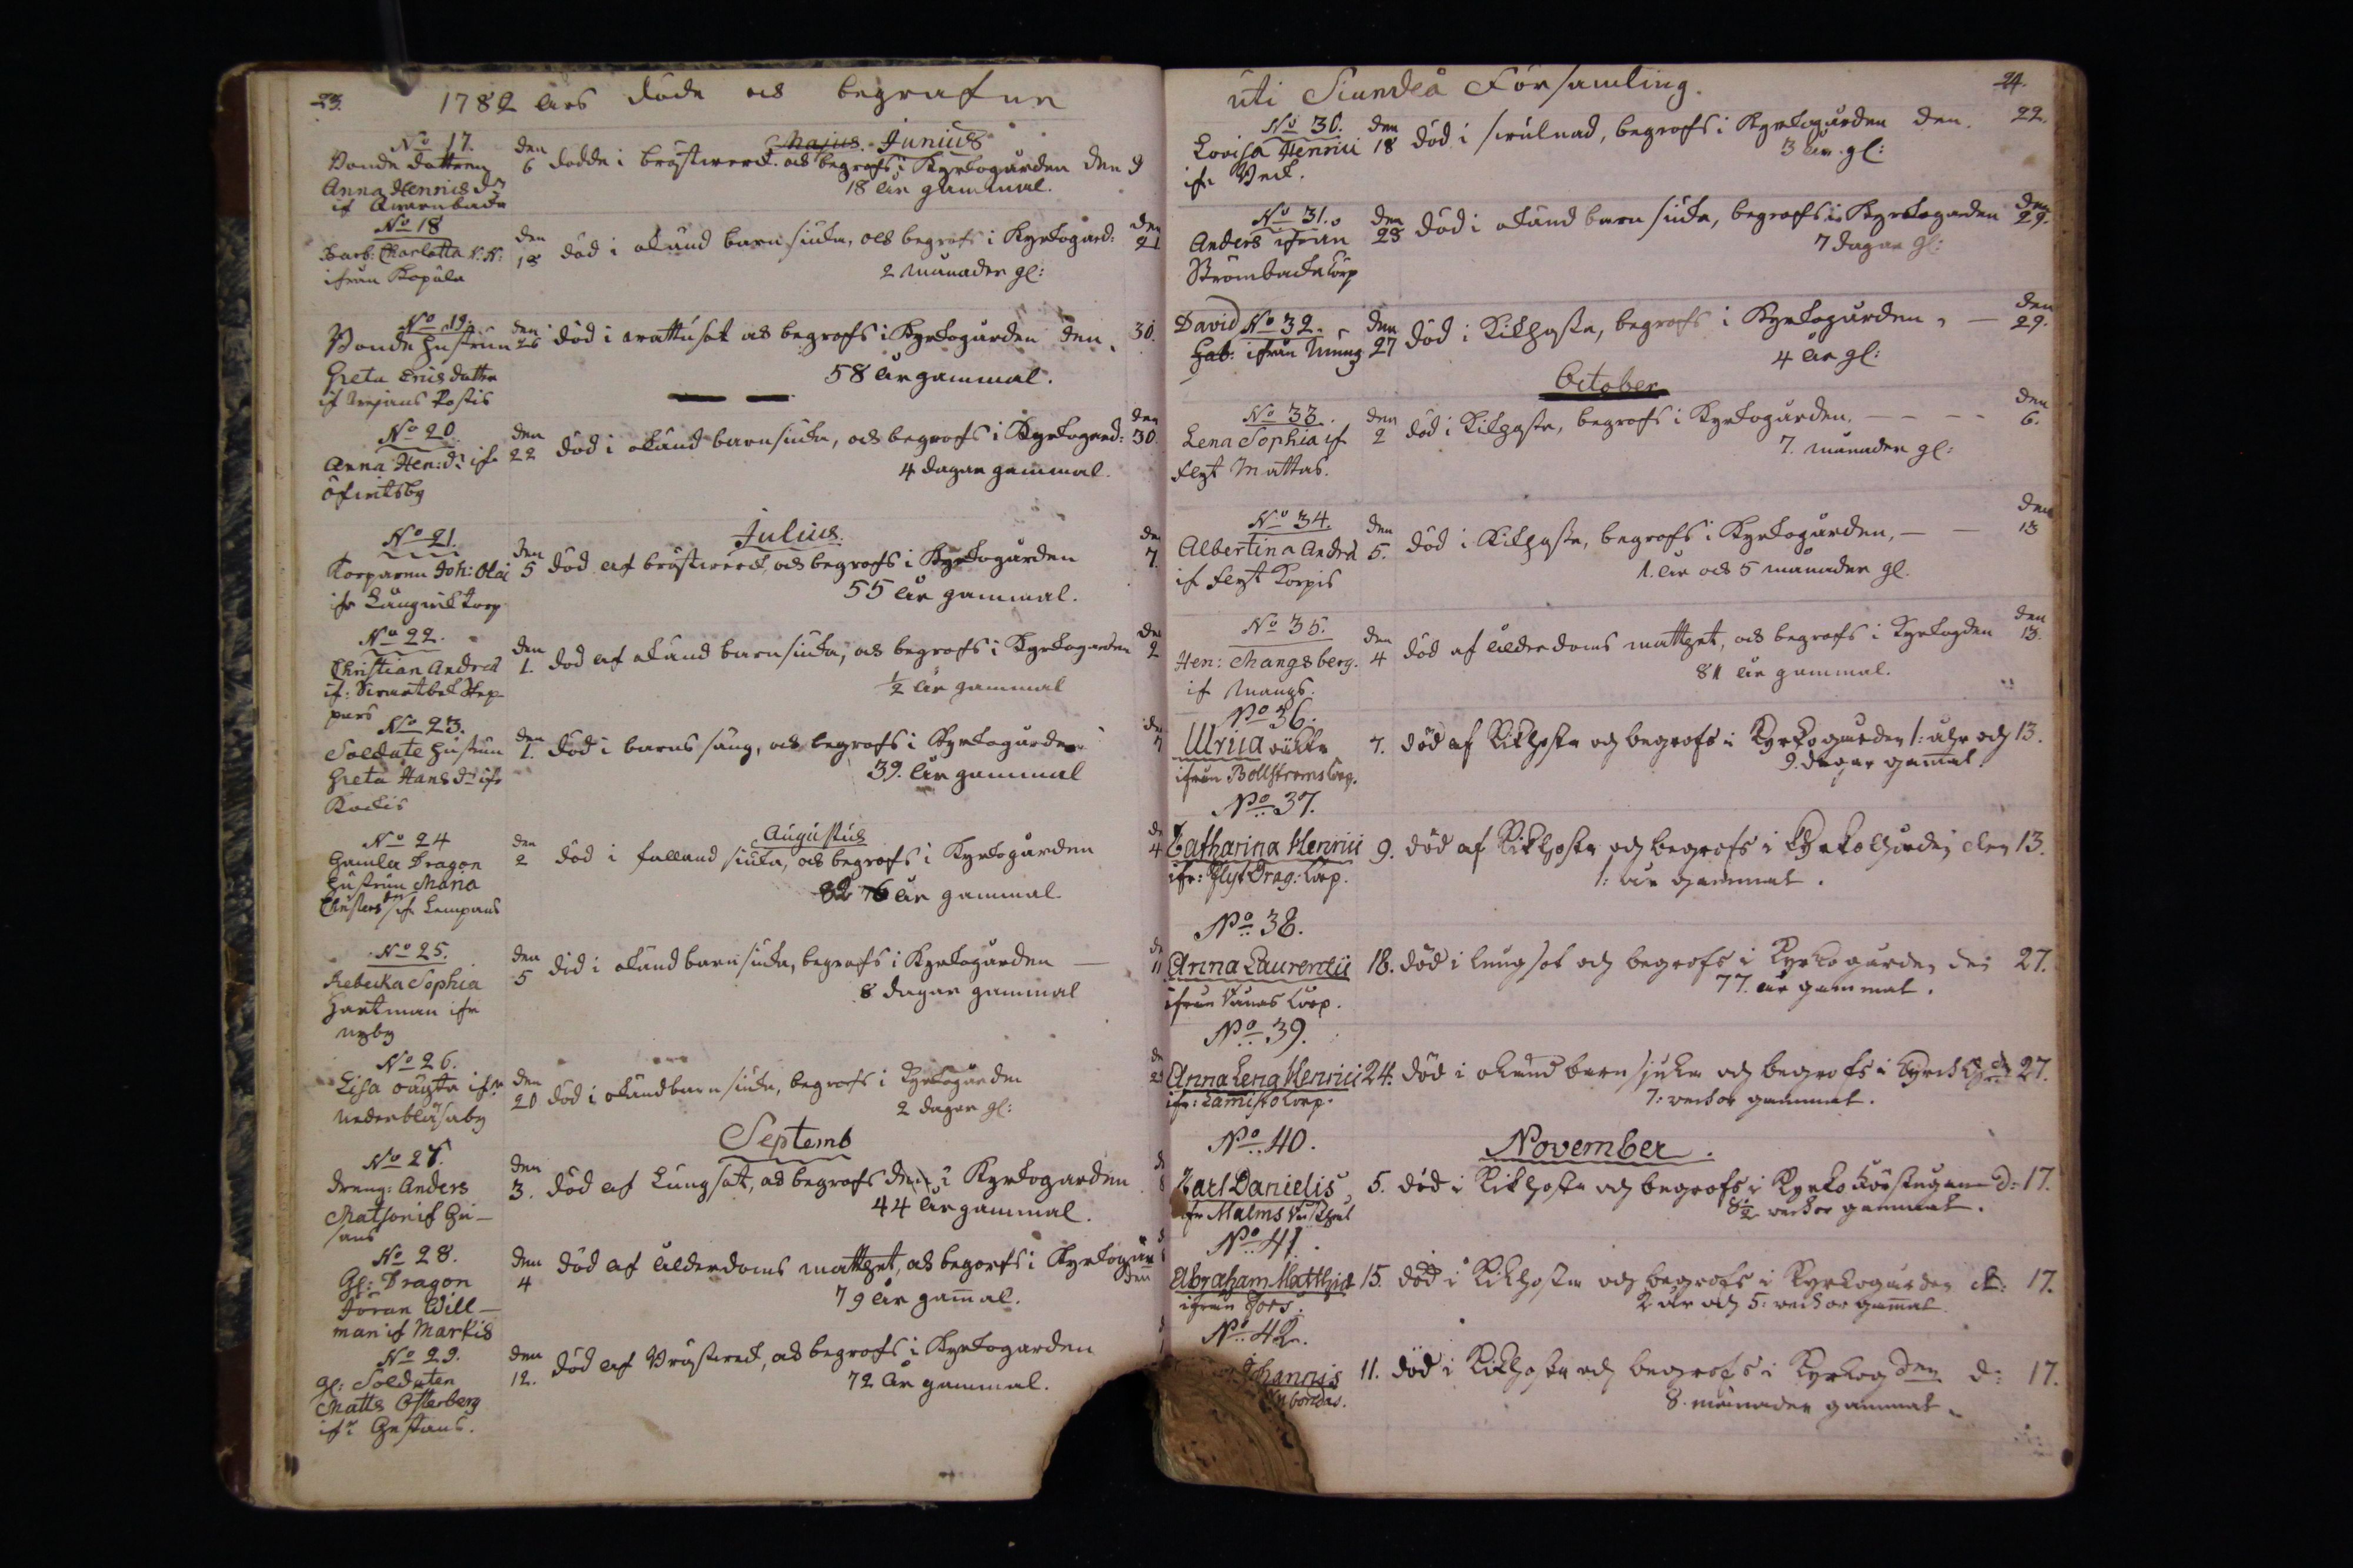 23.
1782 års döde och begrafne
Majus. Junius
No 17.
Bonde dottren
Anna Henrics dr
if Qwarnbacka
den 6 dödde i bröstwerck och begrofs i Kyrkogården den 9
18 år gammal.
No 18
Barb: Charlotta
ifrån Kopula
den 18 död i okänd barnsiuka, och begrofs i Kyrkogård: den 21
2 månader gl:
No 19.
Bonde hustrun
Greta Erics dotter
if
den 26 död i wattusot och begrofs i Kyrkogården den 30.
58 år gammal.
No 20
Anna Hen: dr ifr
öfwitsby
den 22 död i okänd barnsiuka, och begrofs i Kyrkogård: den 30
4 dagar gammal.
Julius.
No 21.
Torparen Joh: Olai
ifr Långwik torp
den 5 död af bröstwerck, och begrofs i Kyrkogården den 7.
55 år gammal.
No 22.
Christian Andreæ
if: Swartbäck
den 1. död af okänd barnsiuka, och begrofs i Kyrkogården den 2
1/2 år gammal
No 23.
Soldate hustrun
Greta Hans dr ifr
Kockis
den 1. död i barnsäng, och begrofs i Kyrkogården den 7
39. år gammal
Augustus
No 24
Gamla Dragon
hustrun Maria
Christers dr if Lempans
den 2 död i fallandsiuka, och begrofs i Kyrkogården 4
82 76 år gammal.
No 25.
Rebecka Sophia
Hartman ifr
nyby
den 5 död i okänd barnsiuka, begrofs i Kyrkogården — 11
8 dagar gammal
No 26.
Lisa oäkta ifr
nederbläsaby
den 20 död i okänd barnsiuka, begrofs i Kyrkogården
2 dagar gl:
Septemb
No 27.
dreng: Anders
Matsson if Gri-
sans
den 3. död af Lungsot, och begrofs den i Kyrkogården 8
44 år gammal.
No 28.
Gl: Dragon
Jöran Will-
man if Markis
den 4 död af ålderdoms matthet, och begrofs i Kyrkogården
79 år gammal.
No 29.
gl: Soldaten
Matts Österberg
ifr Gustans.
den 12. död af Bröstwerck, och begrofs i Kyrkogården
72 år gammal.
uti Siundeå Församling.
24.
No 30.
Lovisa Henrici
ifr Veck.
den 18 död i swulnad, begrofs i Kyrkogården den. 22.
3 år gl:
No 31.
Anders ifrån
Strömbacka torp
den 28 död i okänd barnsiuka, begrofs i Kyrkogården den 29.
7 dagar gl:
David No 32.
Gab: ifrån Mung
den 27 död i Kikhosta, begrofs i Kyrkogården, — den 29.
4 år gl:
October
No 33.
Lena Sophia if
Flyt Mattas.
den 2 död i Kikhosta, begrofs i Kyrkogården. — — — den 6.
7. månader gl:
No 34.
Albertina Andreæ
if Flyt Korpis
den 5. död i Kikhosta, begrofs i Kyrkogården, — — den 13
1. år och 5 månader gl.
No 35.
Hen: Mangsberg.
if Mangs.
den 4 död af ålderdoms matthet, och begrofs i Kyrkogden den 13.
81 år gammal.
No 36.
Ulrica oäkta
ifrån Bollstroms torp.
7. död af Kikhosta och begrofs i Kyrkogården 1: åhr och 13.
9. dagar gamal.
No 37.
Catharina Henrici
ifr: Flyt Drag: torp.
9. död af Kikhosta och begrofs i Kyrkogården den 13.
1: år gammal.
No 38.
Anna Laurentii
ifrån torp.
18. död i lungsot och begrofs i Kyrkogården den 27.
77. år gammal.
No 39.
Anna Lena Henrici
ifr: torp.
24. död i okänd barnsjuka och begrofs i Kyrckg den 27.
7: weckor gammal.
November.
No 40.
Carl Danielis
ifr Malms
5. död i Kikhosta och begrofs i Kyrko d: 17.
8 1/2 weckor gammal.
No 41.
Abraham Matthiæ
ifrån Fors.
15. död i Kikhosta och begrofs i Kyrkogården d: 17.
2 år och 5: weckor gamal
No 42.
Johannis
11. död i Kikhosta och begrofs i Kyrkogden d: 17.
8. månader gammal.